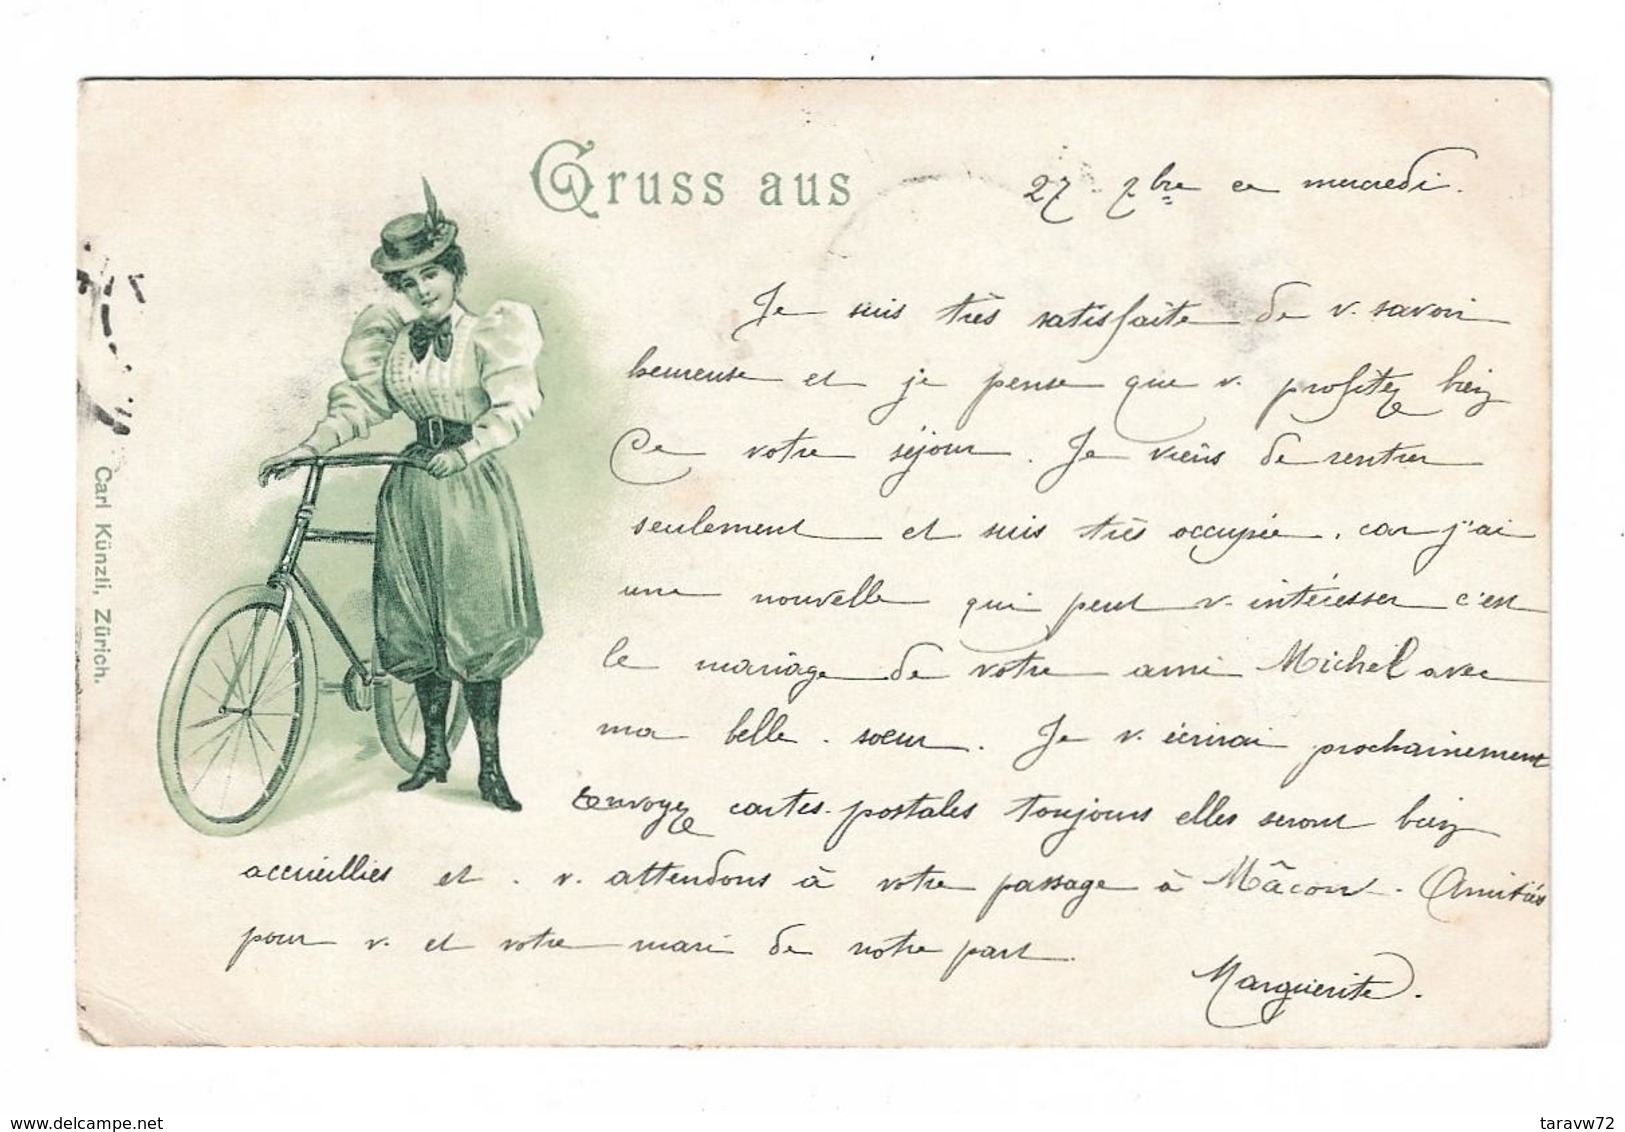 Gruss aus
27 - 7bre ce mercredi.
Je suis très satisfaite de v. savoir
heureuse et je pense que v. profitez bien
de votre séjour. Je viens de rentrer
seulement et suis très occupée, car j'ai
une nouvelle qui peut v. intéresser c'est
le mariage de votre ami Michel avec
ma belle-soeur. Je v. écrirai prochainement
Envoyez cartes-postales toujours elles seront bien
accueillies et v. attendons à votre passage à Mâcon. Amitiés
pour v. et votre mari de notre part.
Marguerite.
Carl Künzli, Zürich.
www.delcampe.net
taravw72